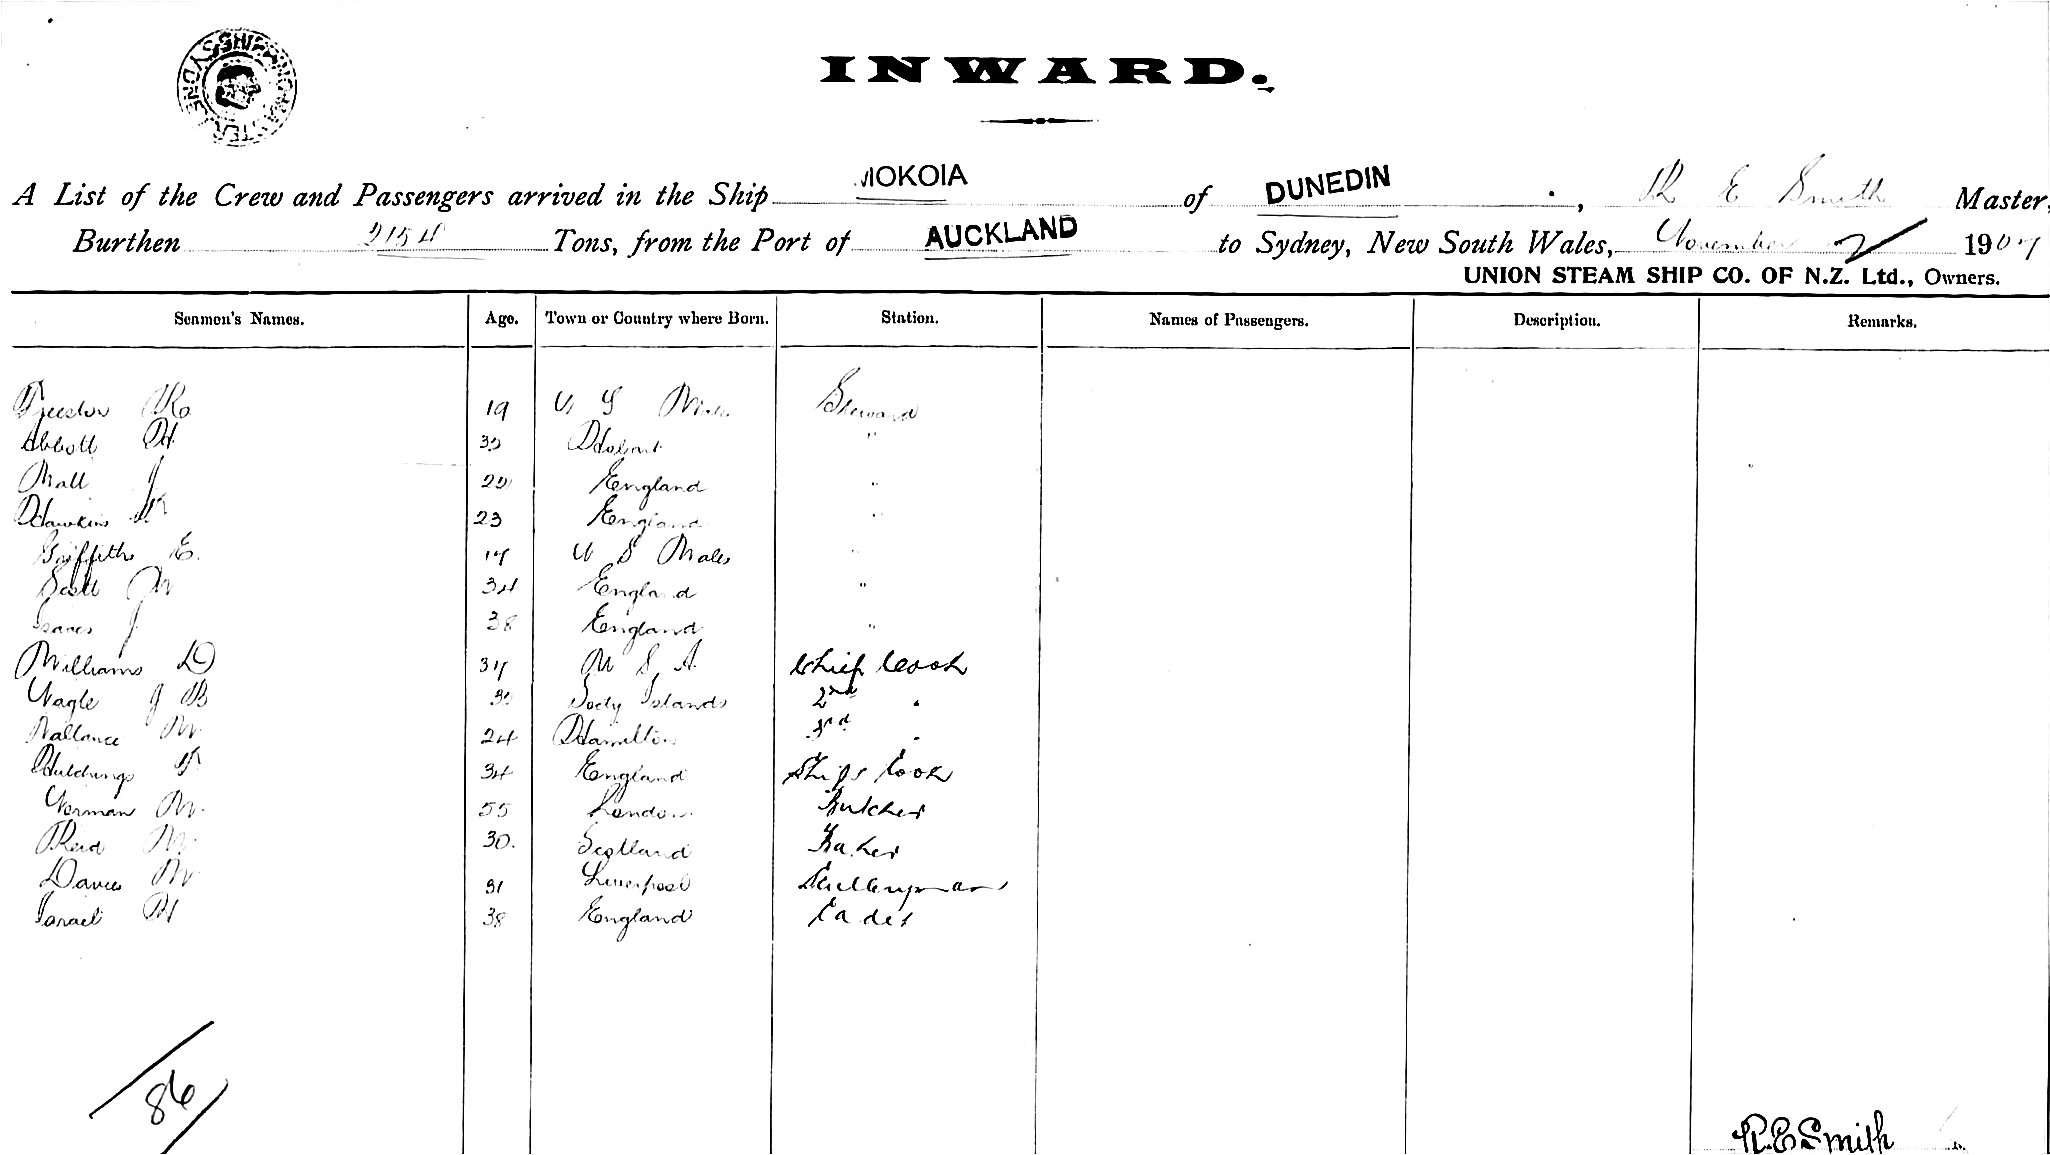 SHIPPING MASTER SYDNEY
INWARD.
A List of the Crew and Passengers arrived in the Ship MOKOIA of DUNEDIN, R E Smith Master,
Burthen 2154 Tons, from the Port of AUCKLAND to Sydney, New South Wales, November 2 1907
UNION STEAM SHIP CO. OF N.Z. Ltd., Owners.
Seamen's Names. Age. Town or Country where Born. Station. Names of Passengers. Description. Remarks.
19 N S Wales Steward
Abbott H Hobart "
Wall J England "
Hawkins 23 England "
Griffiths E. N S Wales "
Scott W 34 England "
Isaacs J 38 England "
Williams D U S A Chief Cook
Nagle J B Islands 2nd "
Wallance W 24 Hamilton 3rd "
Hutchings F 34 England Ships Cook
Norman W. 55 London Butcher
Reid W 30. Scotland Baker
Davies W 31 Liverpool Sculleryman
Israel H 38 England Cadet
86
R.E Smith